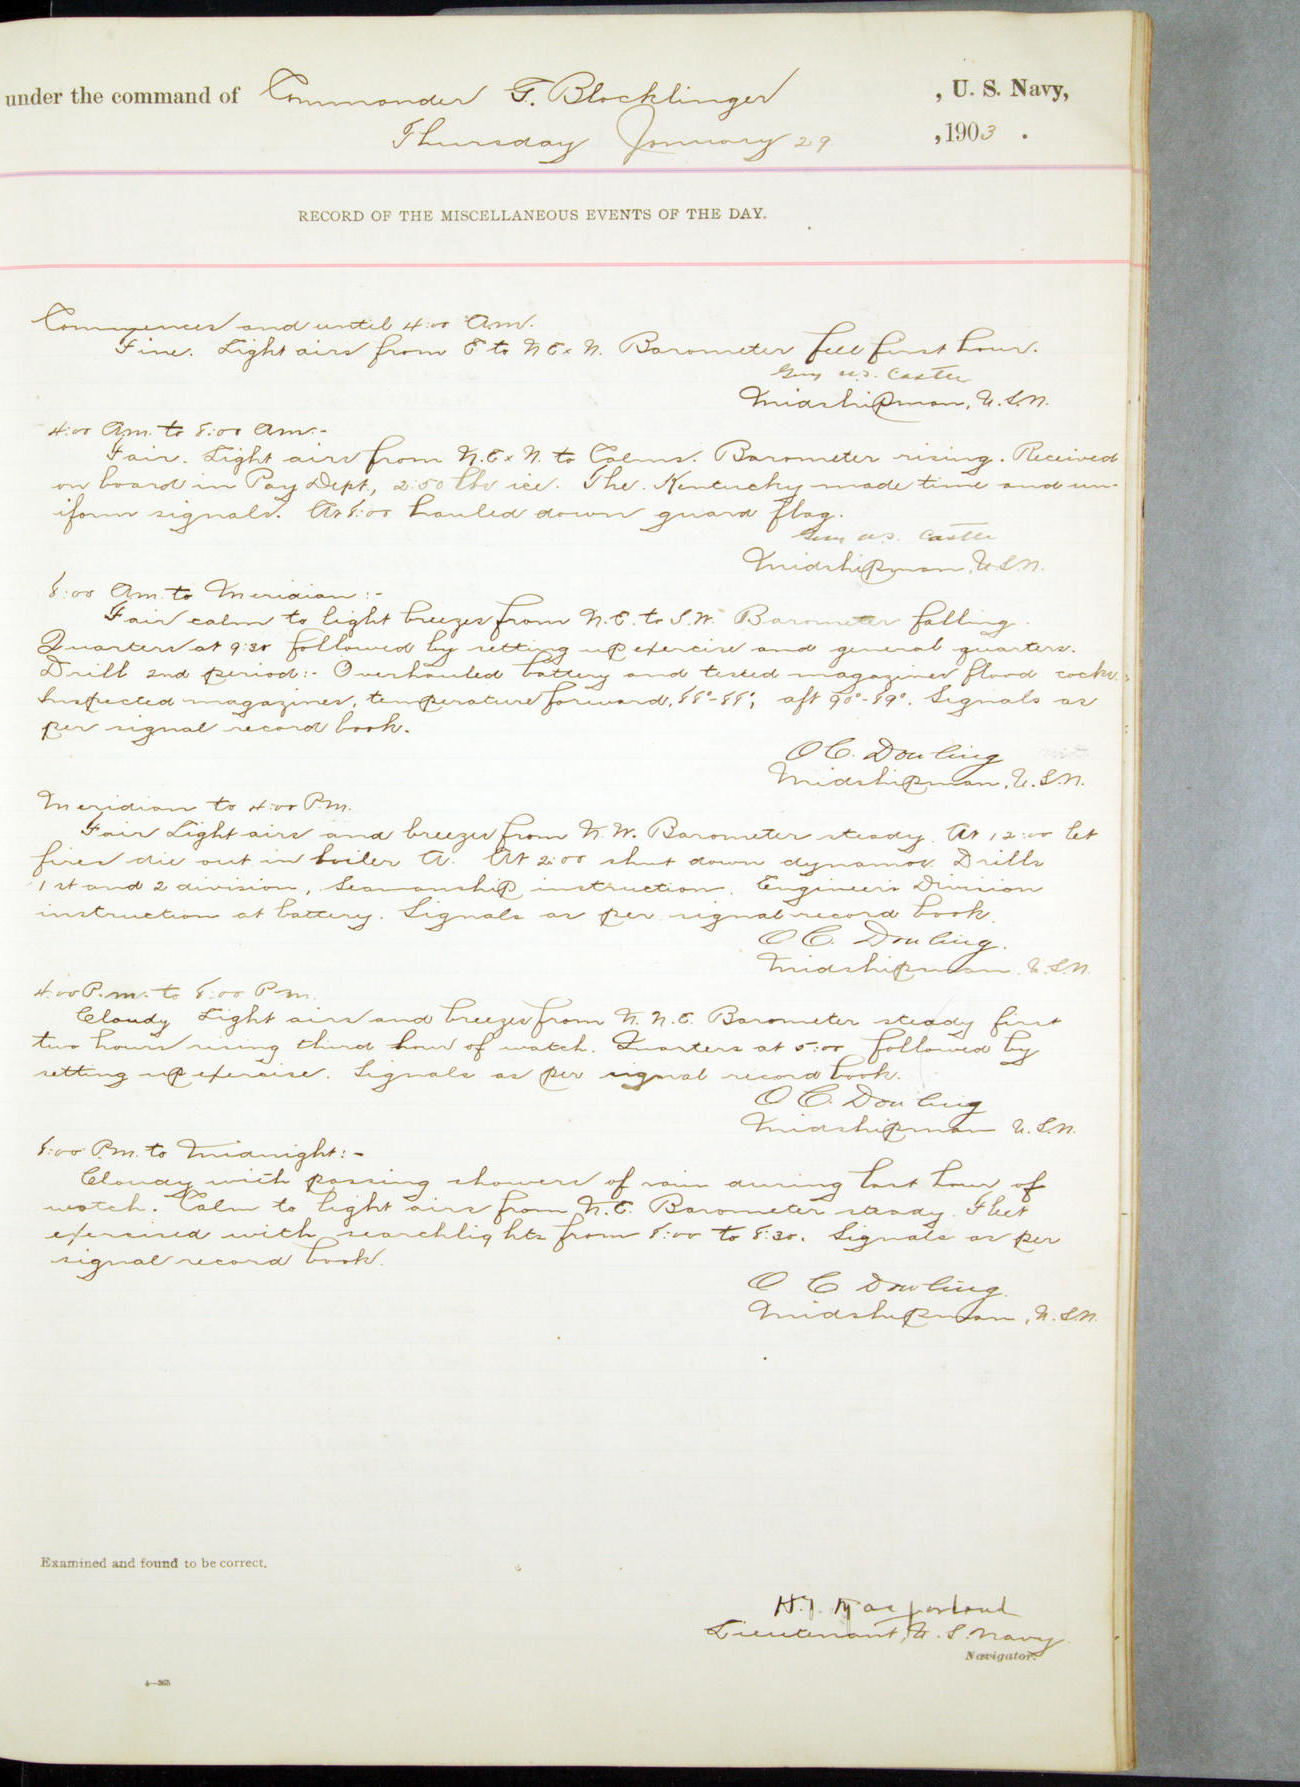 under the command of Commander G. Blocklinger , U. S. Navy,
Thursday January 29 , 1903 .
RECORD OF THE MISCELLANEOUS EVENTS OF THE DAY.
Commences and until 4:00 Am.
Fine. Light airs from E to N E x N. Barometer fell first hour.
Guy W.S. Castle
Midshipman, U.S.N.
4:00 Am. to 8:00 Am:-
Fair. Light airs from N.E x N. to Calms. Barometer rising. Received
on board in Pay Dept, 250 lbs ice. The Kentucky made time and un-
iform signals. At 8:00 hauled down guard flag.
Guy W.S. Castle
Midshipman, U.S.N.
8:00 Am. to Meridian:-
Fair calm to light breezes from N.E. to S.W. Barometer falling.
Quarters at 9:30 followed by setting up exercise and general quarters.
Drill 2nd period:- Overhauled battery and tested magazines flood cocks.
Inspected magazines, temperature forward, 88°-88°; aft 90°-89°. Signals as
per signal record book.
O C. Dowling
Midshipman, U.S.N.
Meridian to 4:00 P.M.
Fair Light airs and breezes from N.W. Barometer steady. At 12:00 let
fires die out in boiler A. At 2:00 shut down dynamos. Drills
1st and 2 division, Seamanship instruction. Engineers Division
instruction at battery. Signals as per signal record book.
O C. Dowling.
Midshipman. U.S.N.
4:00 P.m. to 8:00 P.m.
Cloudy Light airs and breezes from N.N.E. Barometer steady first
two hours rising third hour of watch. Quarters at 5:00 followed by
setting up exercise. Signals as per signal record book.
O C. Dowling
Midshipman U.S.N.
8:00 P.m. to Midnight:-
Cloudy with passing showers of rain during last hour of
watch. Calm to light airs from N.E. Barometer steady. Fleet
exercised with searchlights from 8:00 to 8:30. Signals as per
signal record book.
O C Dowling.
Midshipman, U.S.N.
Examined and found to be correct.
Lieutenant, U. S. Navy.
Navigator.
4—365